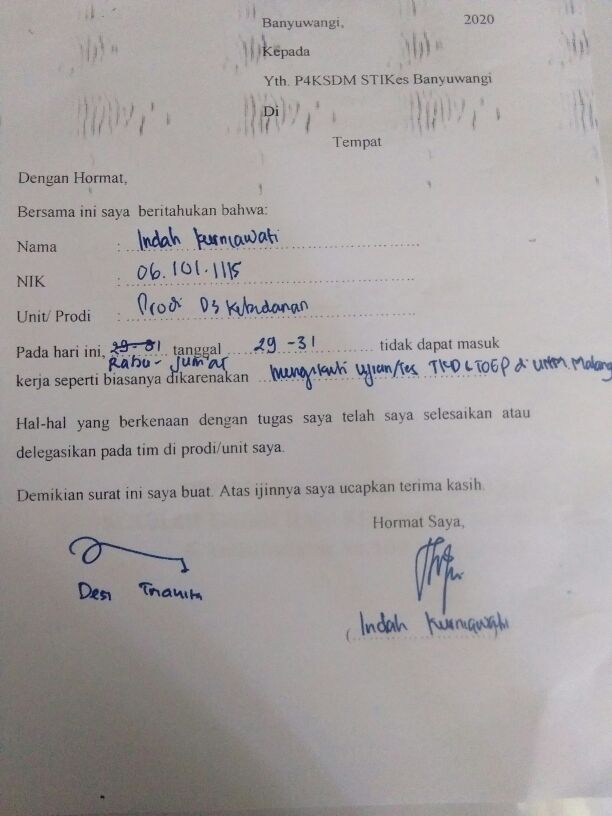 Banyuwangi, 2020
Kepada
Yth. P4KSDM STIKes Banyuwangi
Di
Tempat
Dengan Hormat,
Bersama ini saya beritahukan bahwa:
Nama : Indah Kurniawati
NIK : 06.101.1115
Unit/ Prodi : Prodi D3 Kebidanan
Pada hari ini, 29-31 tanggal 29-31 tidak dapat masuk
Rabu - Jumat
kerja seperti biasanya dikarenakan mengikuti ujian/tes TKD & TOEP di UMM. Malang
Hal-hal yang berkenaan dengan tugas saya telah saya selesaikan atau
delegasikan pada tim di prodi/unit saya.
Demikian surat ini saya buat. Atas ijinnya saya ucapkan terima kasih.
Hormat Saya,
Desi Trianita
( Indah Kurniawati